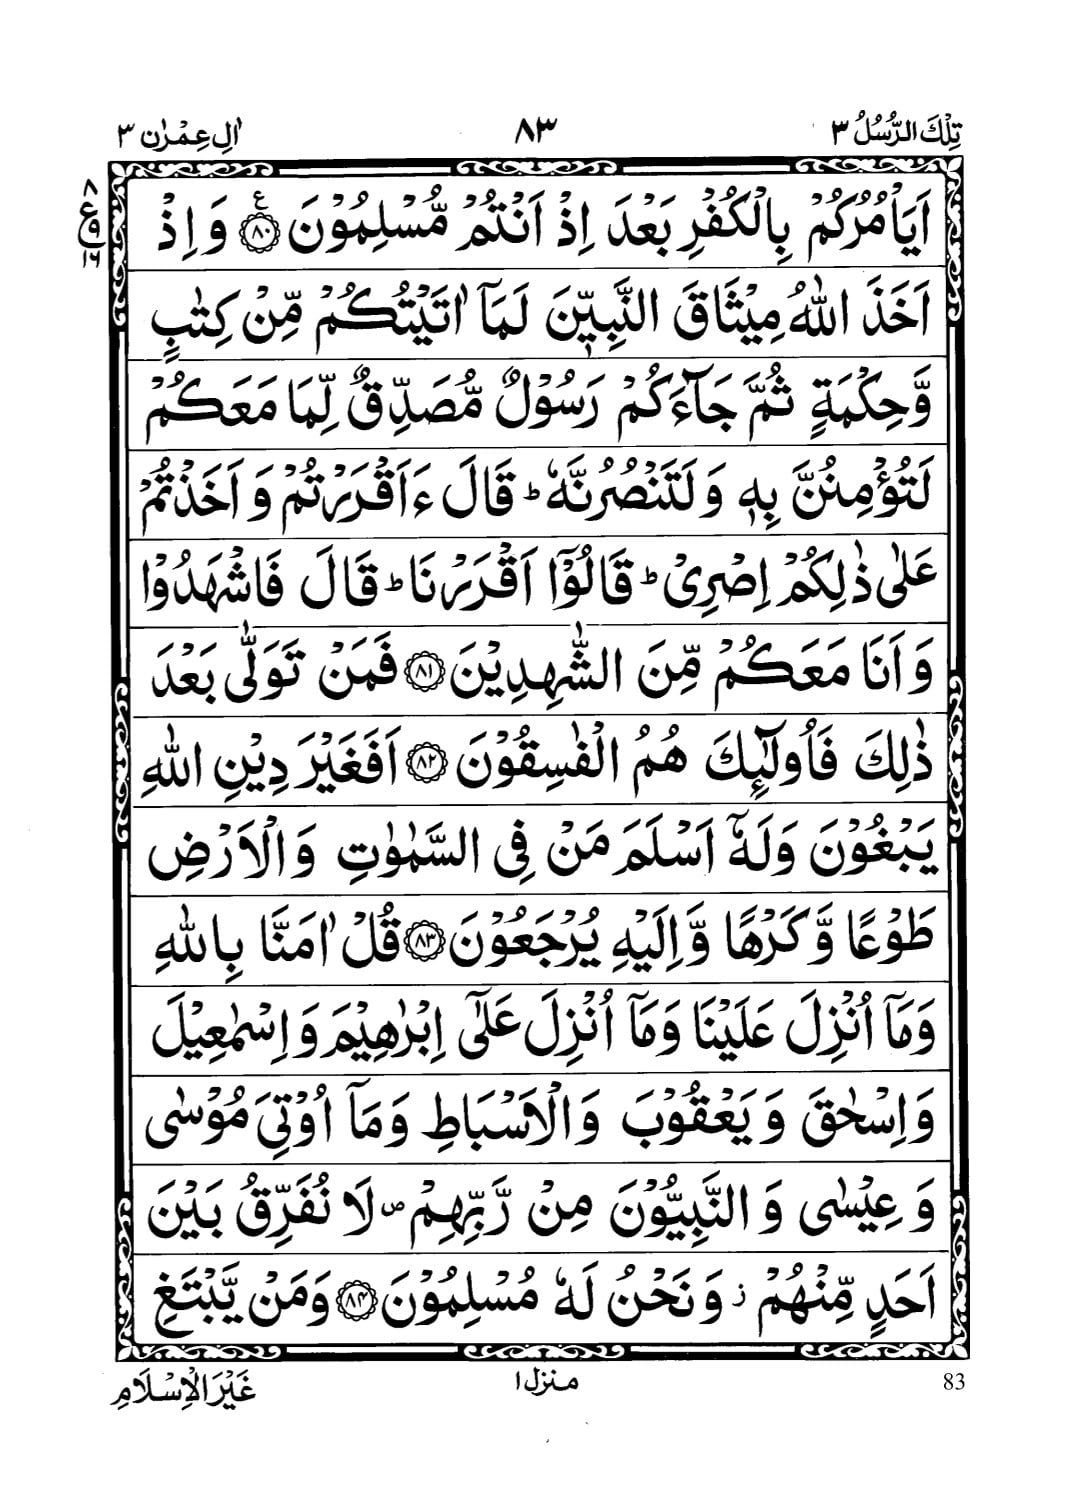 تِلْكَ الرُّسُلُ ٣
٨٣
اٰلِ عِمْرٰن ٣
اَیَاْمُرُكُمْ بِالْكُفْرِ بَعْدَ اِذْ اَنْتُمْ مُّسْلِمُوْنَ ۧ﴿٨٠﴾ وَاِذْ
٨
ع
٩
١٦
اَخَذَ اللّٰهُ مِیْثَاقَ النَّبِیّٖنَ لَمَاۤ اٰتَیْتُكُمْ مِّنْ كِتٰبٍ
وَّحِكْمَةٍ ثُمَّ جَآءَكُمْ رَسُوْلٌ مُّصَدِّقٌ لِّمَا مَعَكُمْ
لَتُؤْمِنُنَّ بِهٖ وَلَتَنْصُرُنَّهٗ ؕ قَالَ ءَاَقْرَرْتُمْ وَاَخَذْتُمْ
عَلٰى ذٰلِكُمْ اِصْرِیْ ؕ قَالُوْۤا اَقْرَرْنَا ؕ قَالَ فَاشْهَدُوْا
وَاَنَا مَعَكُمْ مِّنَ الشّٰهِدِیْنَ ﴿٨١﴾ فَمَنْ تَوَلّٰى بَعْدَ
ذٰلِكَ فَاُولٰٓىِٕكَ هُمُ الْفٰسِقُوْنَ ﴿٨٢﴾ اَفَغَیْرَ دِیْنِ اللّٰهِ
یَبْغُوْنَ وَلَهٗۤ اَسْلَمَ مَنْ فِی السَّمٰوٰتِ وَالْاَرْضِ
طَوْعًا وَّكَرْهًا وَّاِلَیْهِ یُرْجَعُوْنَ ﴿٨٣﴾ قُلْ اٰمَنَّا بِاللّٰهِ
وَمَاۤ اُنْزِلَ عَلَیْنَا وَمَاۤ اُنْزِلَ عَلٰۤى اِبْرٰهِیْمَ وَاِسْمٰعِیْلَ
وَاِسْحٰقَ وَیَعْقُوْبَ وَالْاَسْبَاطِ وَمَاۤ اُوْتِیَ مُوْسٰى
وَعِیْسٰى وَالنَّبِیُّوْنَ مِنْ رَّبِّهِمْ ۪ لَا نُفَرِّقُ بَیْنَ
اَحَدٍ مِّنْهُمْ ؗ وَنَحْنُ لَهٗ مُسْلِمُوْنَ ﴿٨٤﴾ وَمَنْ یَّبْتَغِ
83
منزل ١
غَیْرَ الْاِسْلَامِ